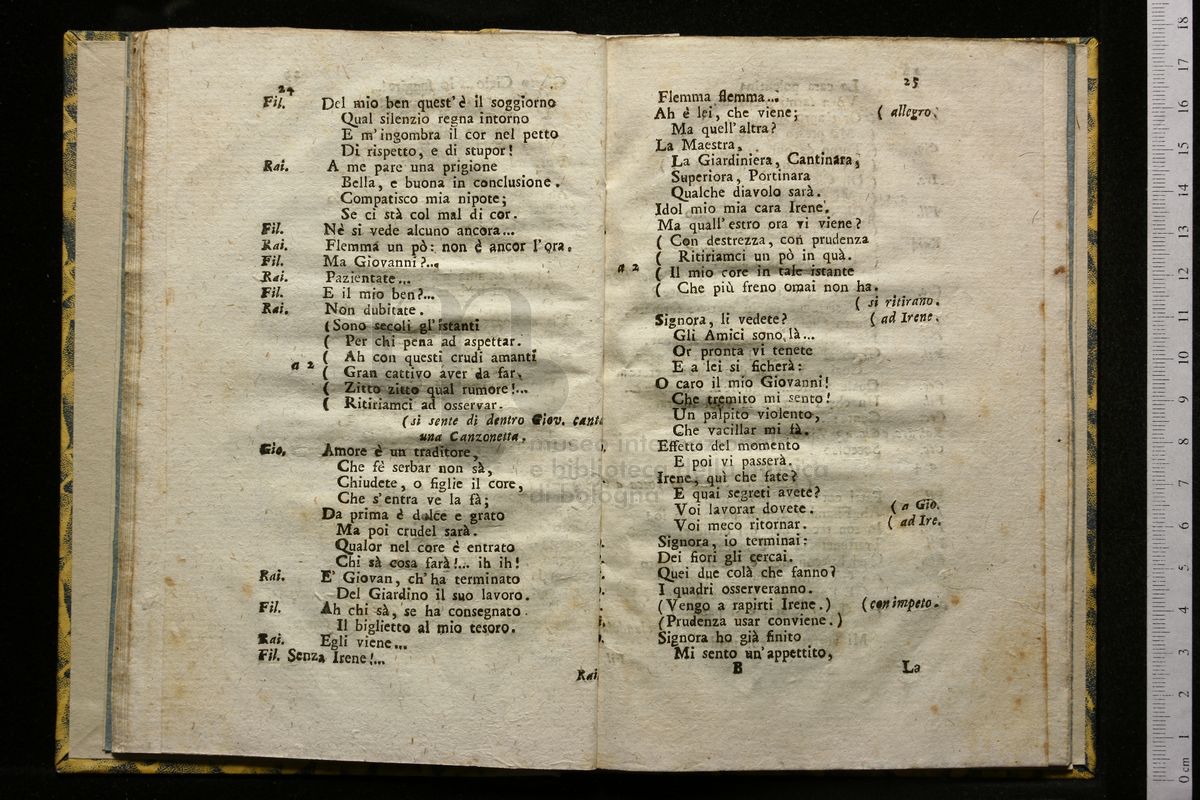 24
Fil. Del mio ben quest' è il soggiorno
Qual silenzio regna intorno
E m' ingombra il cor nel petto
Di rispetto, e di stupor!
Rai. A me pare una prigione
Bella, e buona in conclusione.
Compatisco mia nipote;
Se ci stà col mal di cor.
Fil. Nè si vede alcuno ancora...
Rai. Flemma un pò: non è ancor l'ora.
Fil. Ma Giovanni?...
Rai. Pazientate...
Fil. E il mio ben?...
Rai. Non dubitate.
(Sono secoli gl' istanti
( Per chi pena ad aspettar.
( Ah con questi crudi amanti
a 2
( Gran cattivo aver da far.
( Zitto zitto qual rumore!...
( Ritiriamci ad osservar.
(si sente di dentro Giov. cant
una Canzonetta.
Gio. Amore è un traditore,
Che fè serbar non sà,
Chiudete, o figlie il core,
Che s'entra ve la fà;
Da prima è dolce e grato
Ma poi crudel sarà.
Qualor nel core è entrato
Chi sà cosa farà!... ih ih!
Rai. E' Giovan, ch' ha terminato
Del Giardino il suo lavoro.
Fil. Ah chi sà, se ha consegnato
Il biglietto al mio tesoro.
Rai. Egli viene...
Fil. Senza Irene!...
Rai
25
Flemma flemma...
Ah è lei, che viene; ( allegro.
Ma quell' altra?
La Maestra,
La Giardiniera, Cantinara,
Superiora, Portinara
Qualche diavolo sarà.
Idol mio mia cara Irene.
Ma quall' estro ora vi viene?
( Con destrezza, con prudenza
( Ritiriamci un pò in quà.
a 2
( Il mio core in tale istante
( Che più freno omai non ha.
( si ritirano.
Signora, li vedete? ( ad Irene.
Gli Amici sono là...
Or pronta vi tenete
E a lei si ficherà:
O caro il mio Giovanni!
Che tremito mi sento!
Un palpito violento,
Che vacillar mi fà.
Effetto del momento
E poi vi passerà.
Irene, quì che fate?
E quai segreti avete?
Voi lavorar dovete. ( a Gio.
Voi meco ritornar. ( ad Ire.
Signora, io terminai:
Dei fiori gli cercai.
Quei due colà che fanno?
I quadri osserveranno.
(Vengo a rapirti Irene.) (con impeto.
(Prudenza usar conviene.)
Signora ho già finito
Mi sento un' appettito,
B
La